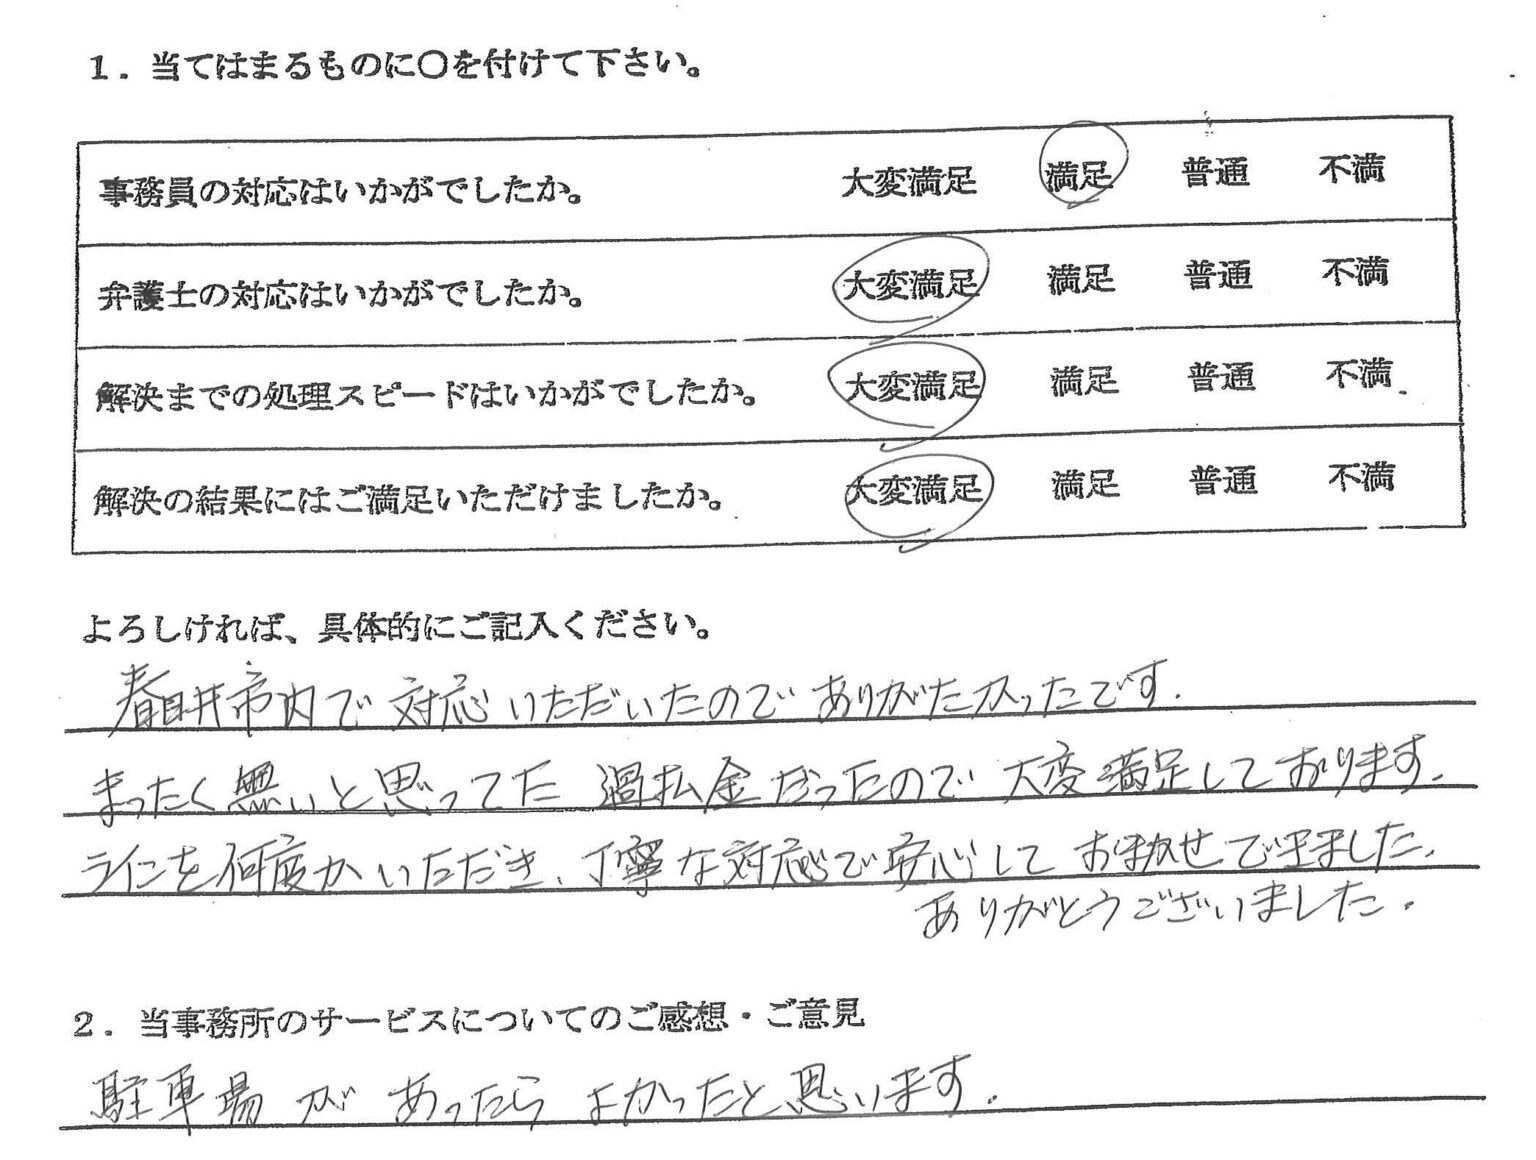 1．当てはまるものに〇を付けて下さい。
事務員の対応はいかがでしたか。 大変満足 満足 普通 不満
弁護士の対応はいかがでしたか。 大変満足 満足 普通 不満
解決までの処理スピードはいかがでしたか。 大変満足 満足 普通 不満
解決の結果にはご満足いただけましたか。 大変満足 満足 普通 不満
よろしければ、具体的にご記入ください。
春日井市内で対応いただいたのでありがたかったです.
まったく無いと思ってた過払金だったので大変満足しております.
ラインを何度かいただき、丁寧な対応で安心しておまかせできました.
ありがとうございました.
2．当事務所のサービスについてのご感想・ご意見
駐車場があったらよかったと思います.